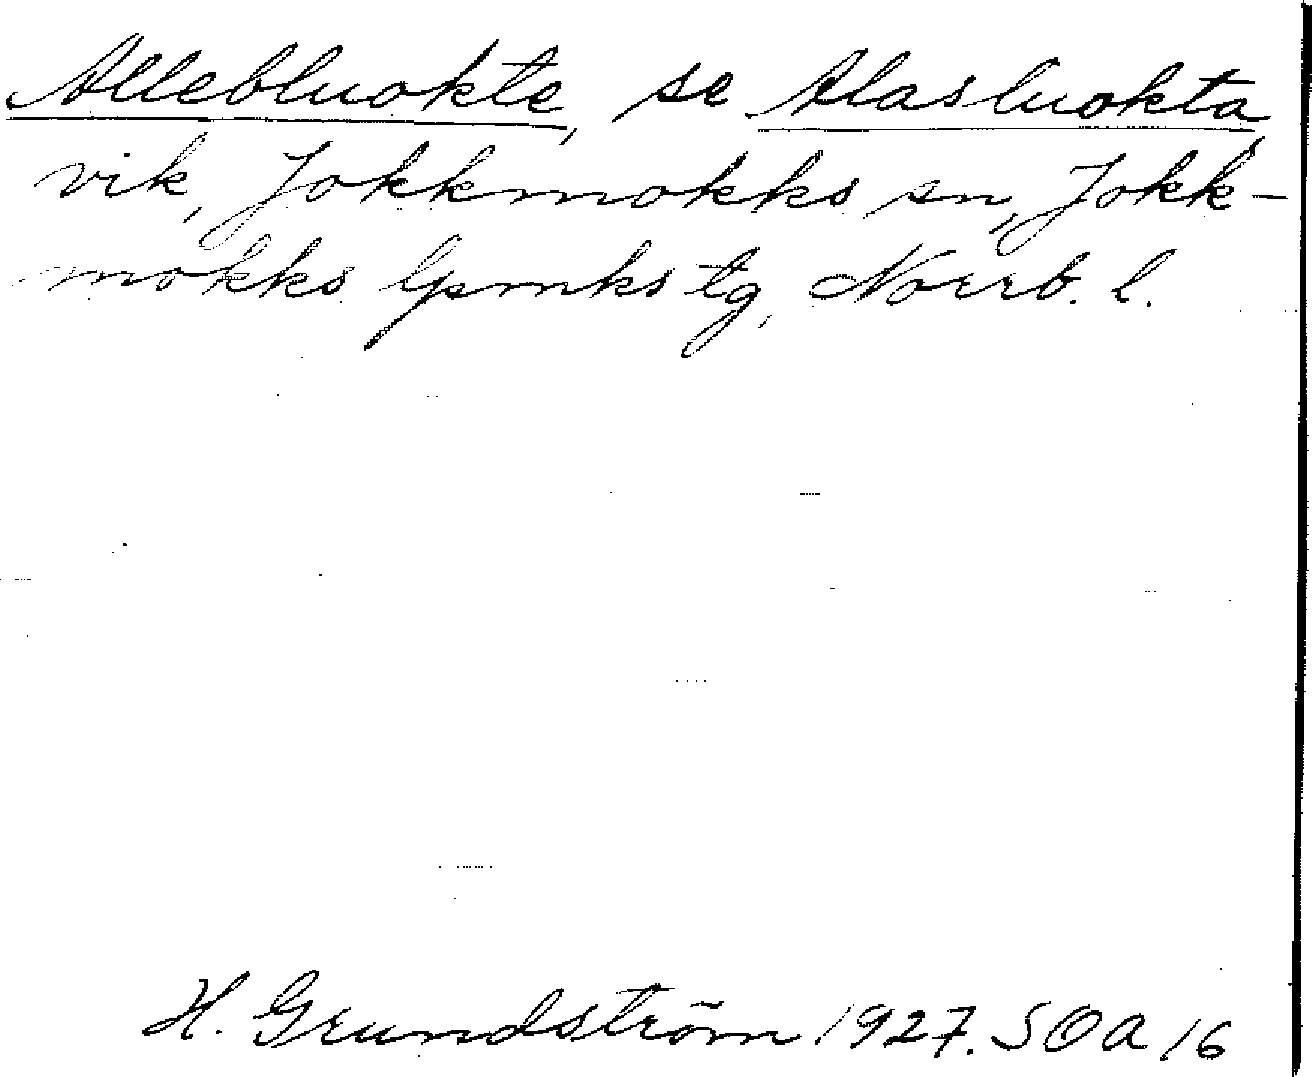 Allebluokte, se Alasluokta,
vik, Jokkmokks sn, Jokk-
mokks lpmks tg, Norrb. l.
H. Grundström 1927. SOA 16